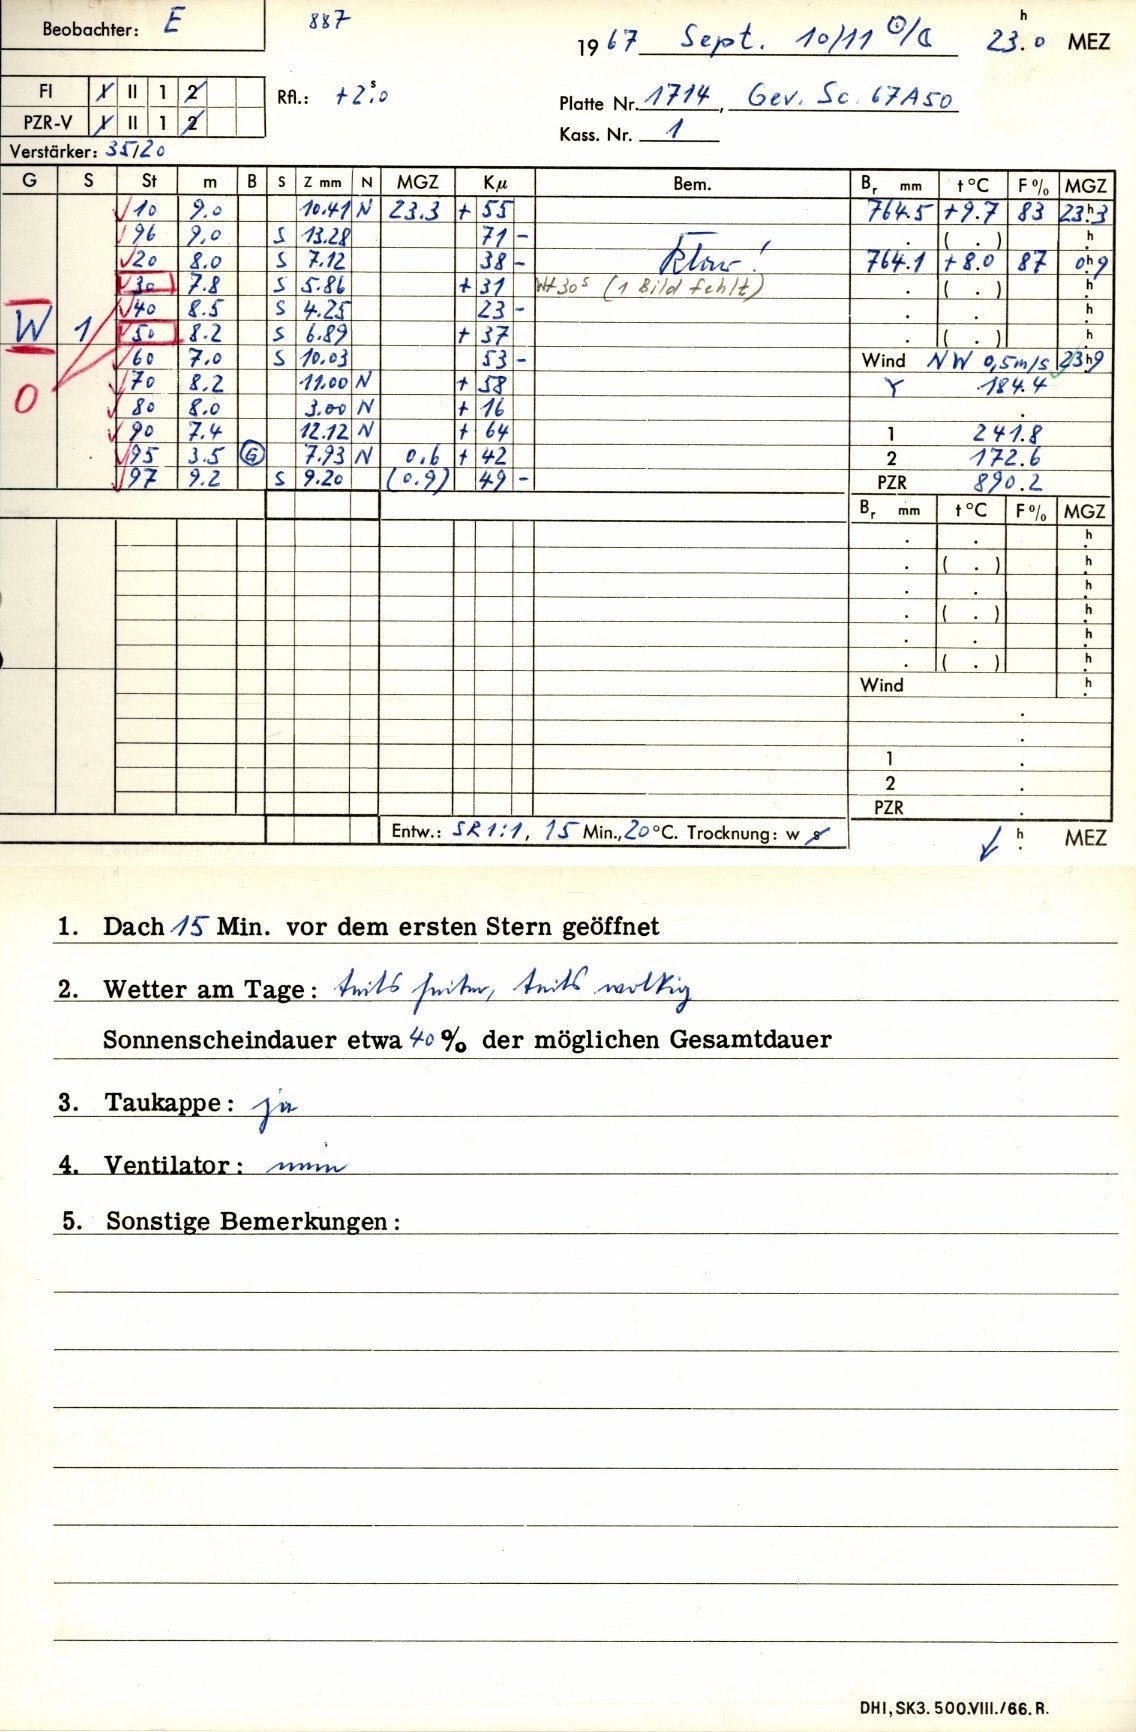 Beobachter: E
887
1967 Sept. 10/11 ☉/☾ 23.h0 MEZ
FI I II 1 2
PZR-V I II 1 2
Rfl.: +2.s0
Platte Nr. 1714, Gev. Sc. 67A50
Kass. Nr. 1
Verstärker: 35/20
G S St m B S Z mm N MGZ Kμ Bem. Br mm t °C F % MGZ
10 9.0 10.41 N 23.3 + 55 764.5 +9.7 83 23.h3
96 9.0 S 13.28 71 - . ( . ) h
20 8.0 S 7.12 38 - Klar! 764.1 +8.0 87 0.h9
30 7.8 S 5.86 + 31 W+30s (1 Bild fehlt) . ( . ) h
40 8.5 S 4.25 23 - . . h
W 1 50 8.2 S 6.89 + 37 . ( . ) h
60 7.0 S 10.03 53 - Wind NW 0,5m/s 23.h9
O 70 8.2 11.00 N + 58 Y 184.4
80 8.0 3.00 N + 16 .
90 7.4 12.12 N + 64 1 241.8
95 3.5 G 7.93 N 0.6 + 42 2 172.6
97 9.2 S 9.20 (0.9) 49 - PZR 890.2
Br mm t °C F % MGZ
. . h
. ( . ) h
. . h
. ( . ) h
. . h
. ( . ) h
Wind h
.
.
1 .
2 .
PZR .
Entw.: SR1:1, 15 Min., 20 °C. Trocknung: w s
h. MEZ
1. Dach 15 Min. vor dem ersten Stern geöffnet
2. Wetter am Tage: teils heiter, teils wolkig
Sonnenscheindauer etwa 40 % der möglichen Gesamtdauer
3. Taukappe: ja
4. Ventilator: nein
5. Sonstige Bemerkungen:
DHI, SK3. 500.VIII./66. R.